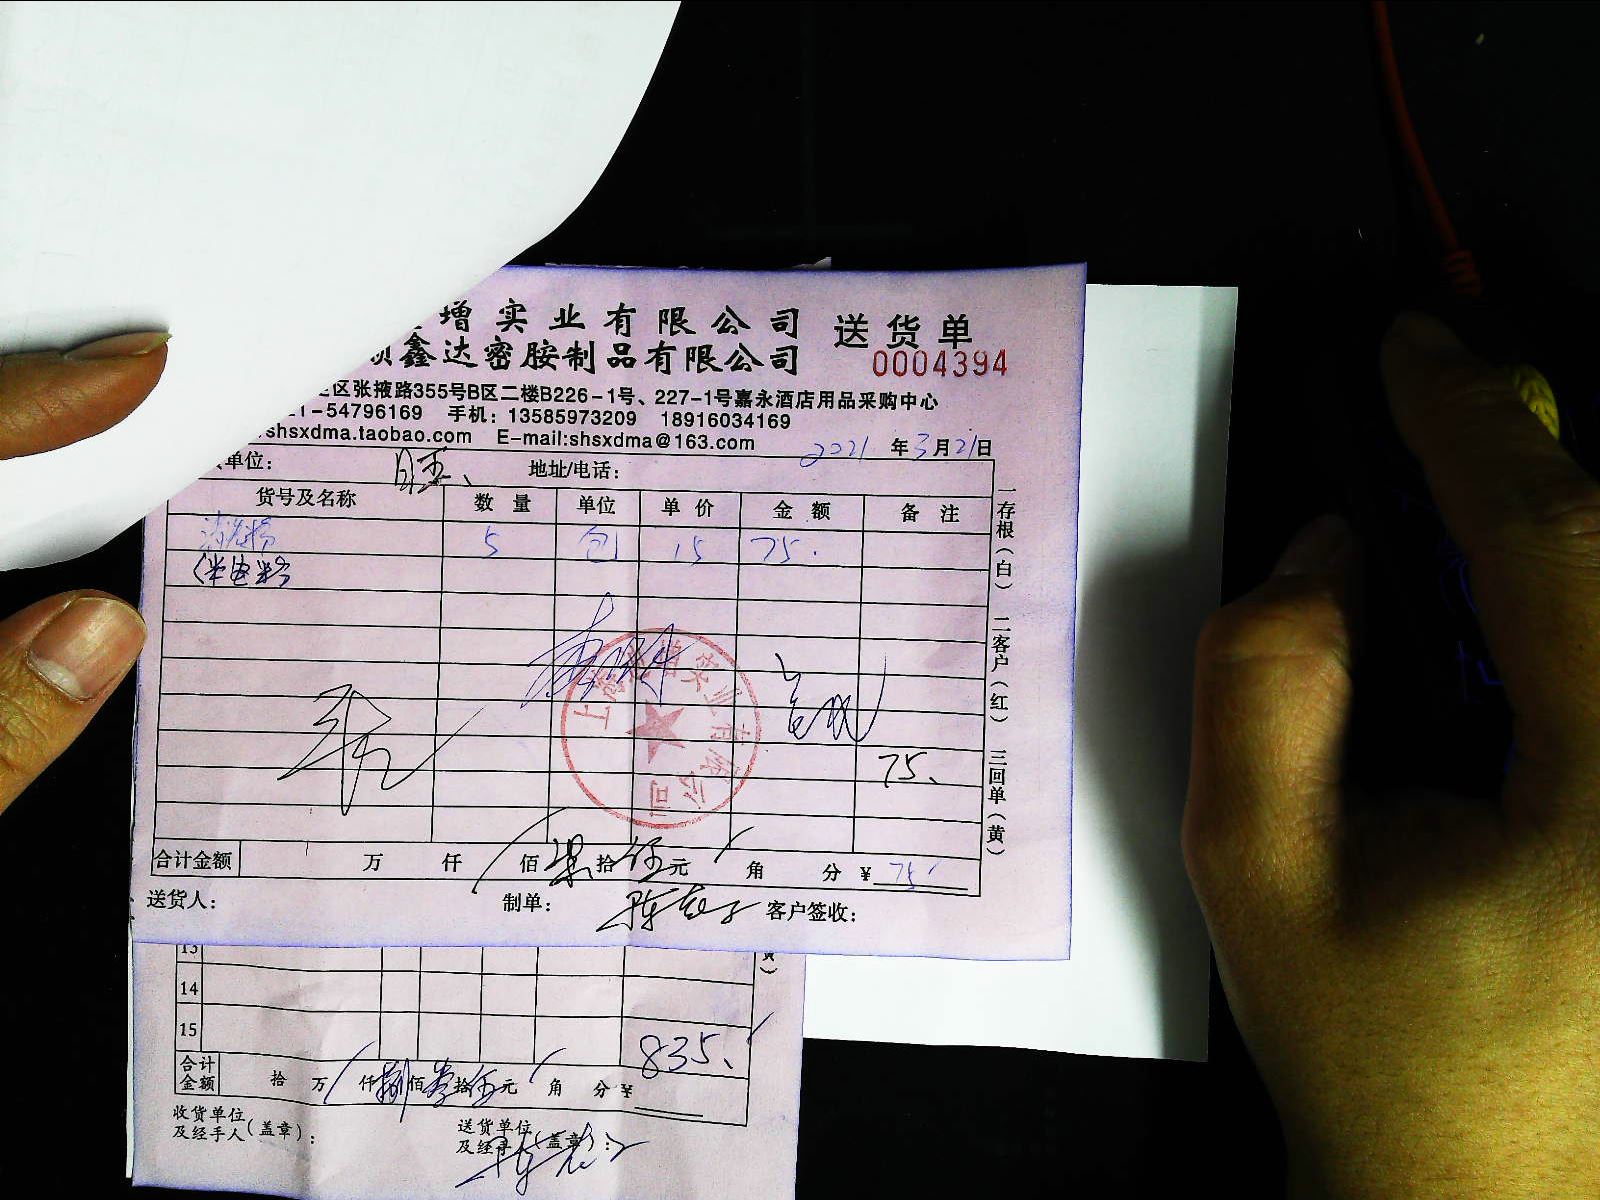 增实业有限公司 送货单
鑫达密胺制品有限公司 0004394
区张掖路355号B区二楼B226-1号、227-1号嘉永酒店用品采购中心
1-54796169 手机：13585973209 18916034169
shsxdma.taobao.com E-mail:shsxdma@163.com 2021 年 3 月 21 日
单位： 地址/电话：
货号及名称 数量 单位 单价 金额 备注
5 包 15 75.
75.
合计金额 万 仟 佰 柒 拾 伍 元 角 分 ¥ 75
送货人： 制单： 客户签收：
一存根（白） 二客户（红） 三回单（黄）
13
14
15
835.
合计金额 拾 万 仟 捌 佰 叁 拾 伍 元 角 分 ¥
收货单位及经手人（盖章）： 送货单位及经手人（盖章）：
上海 增实业有限公司